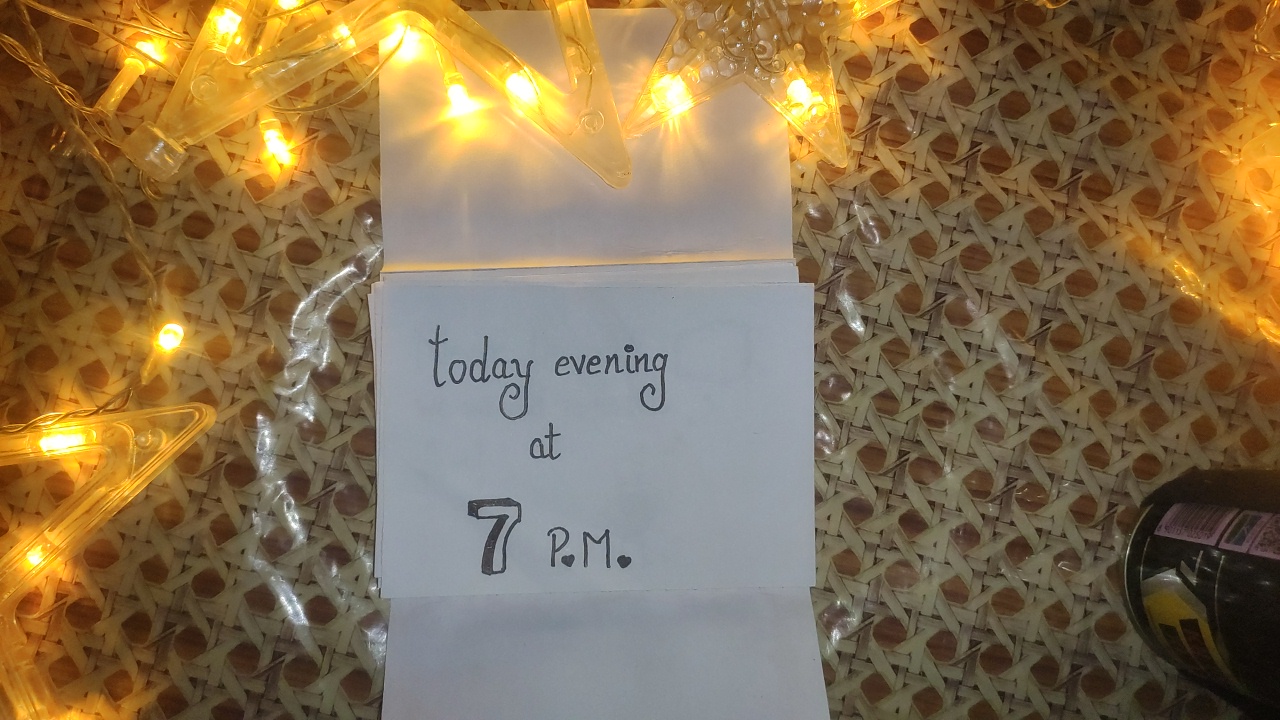 today evening
at
7 P.M.